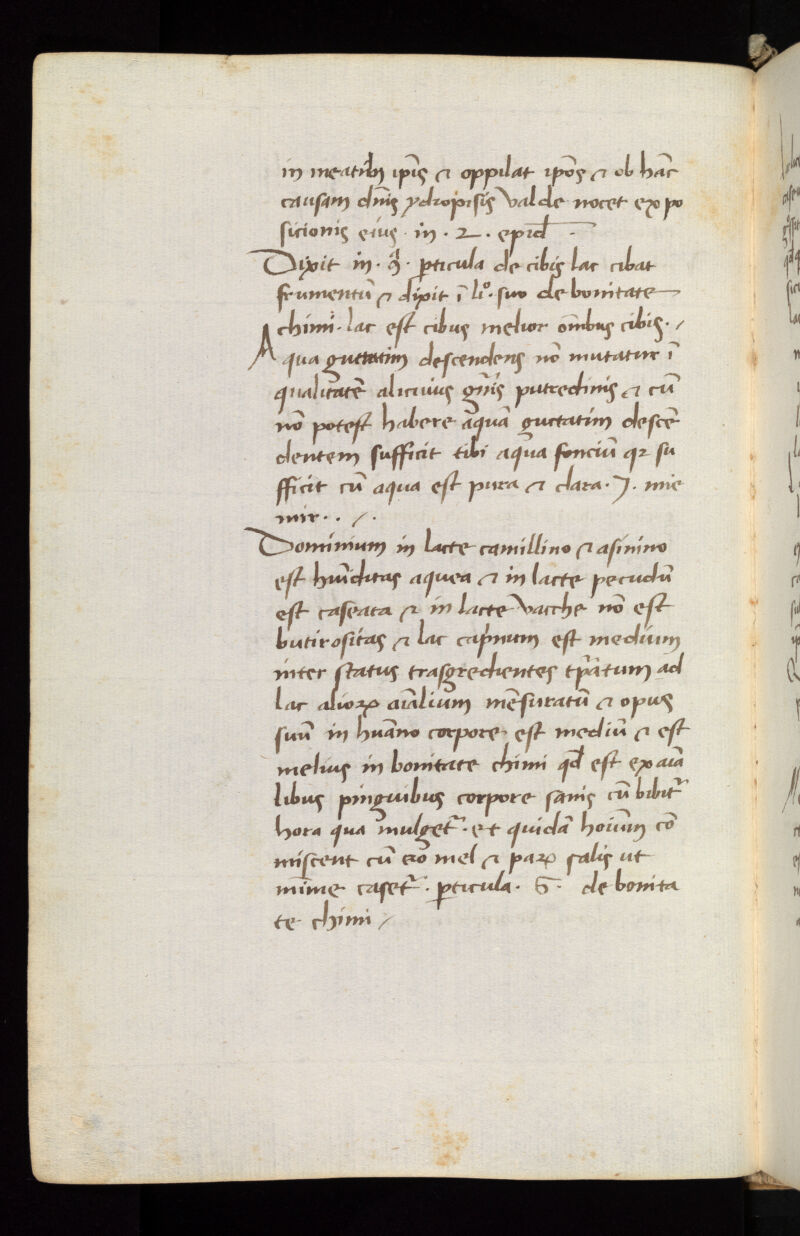 in meatibꝫ ip̄is ⁊ oppilat ipōs ⁊ ob hāc
causam dn̄is ydropisis valde nocet expo
sicionis eius · in · 2 · epid̄ ·
Dixit in · · ꝑticula de cibis lac cibat
frumentū ⁊ dixit ī li⁰· suo de bonitate
chimi · lac est cibus melior om̄bus cibis · /
Aqua guttatim descendens nō mutatur ī
qualitatē alicuius gn̄is putredinis ⁊ cū
nō potest habere aquā guctatim descē
dentem sufficit tibi aqua fonciū qꝛ su
fficit cū aqua est pura ⁊ clara · J · mie
mir · · / ·
Dominium in lacte camillino ⁊ asinino
est hūiditas aquea ⁊ in lacte pecudū
est caseata ⁊ in lacte vacche nō est
butirositas ⁊ lac cap̄inum est medium
inter status trasgredientes tp̄atum ad
lac alioꝝ aīalium mēsuratū ⁊ opus
suū in huāno corpore est mediū ⁊ est
melius in bonitate chimi qd̄ est ex aīa
libus pinguibus corpore sanis cū bibit᷑
hora qua mulget᷑ · et quidā hoīum cō
miscent cū eō mel ⁊ paꝝ salis ut
mīme caset᷑ · ꝑticula · · de bonita
te chimi /